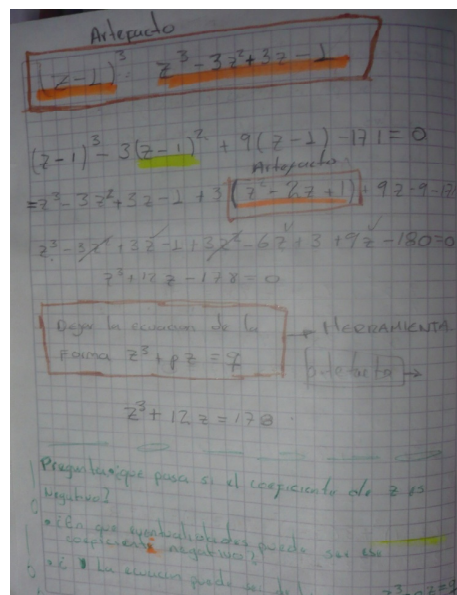 Artefacto
(z-1)³ = z³ - 3z² + 3z - 1
(z-1)³ - 3(z-1)² + 9(z-1) - 171 = 0
Artefacto
= z³ - 3z² + 3z - 1 + 3(z² - 2z + 1) + 9z - 9 - 171
z³ - 3z² + 3z - 1 + 3z² - 6z + 3 + 9z - 180 = 0
z³ + 12z - 178 = 0
Dejar la ecuacion de la
forma z³ + pz = q
→ HERRAMIENTA
Artefacto →
z³ + 12z = 178
Pregunta: ¿que pasa si el coeficiente de z es
negativo?
• ¿En que eventualidades puede ser ese
coeficiente negativo?
• ¿ La ecuacion puede